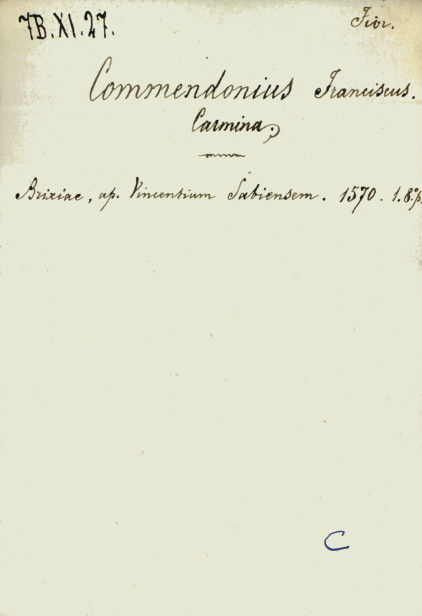 7B.XI.27.
Fior.
Commendonius Franciscus.
Carmina.
Brixiae, ap. Vincentium Sabiensem. 1570. 1. 8.° p.
C